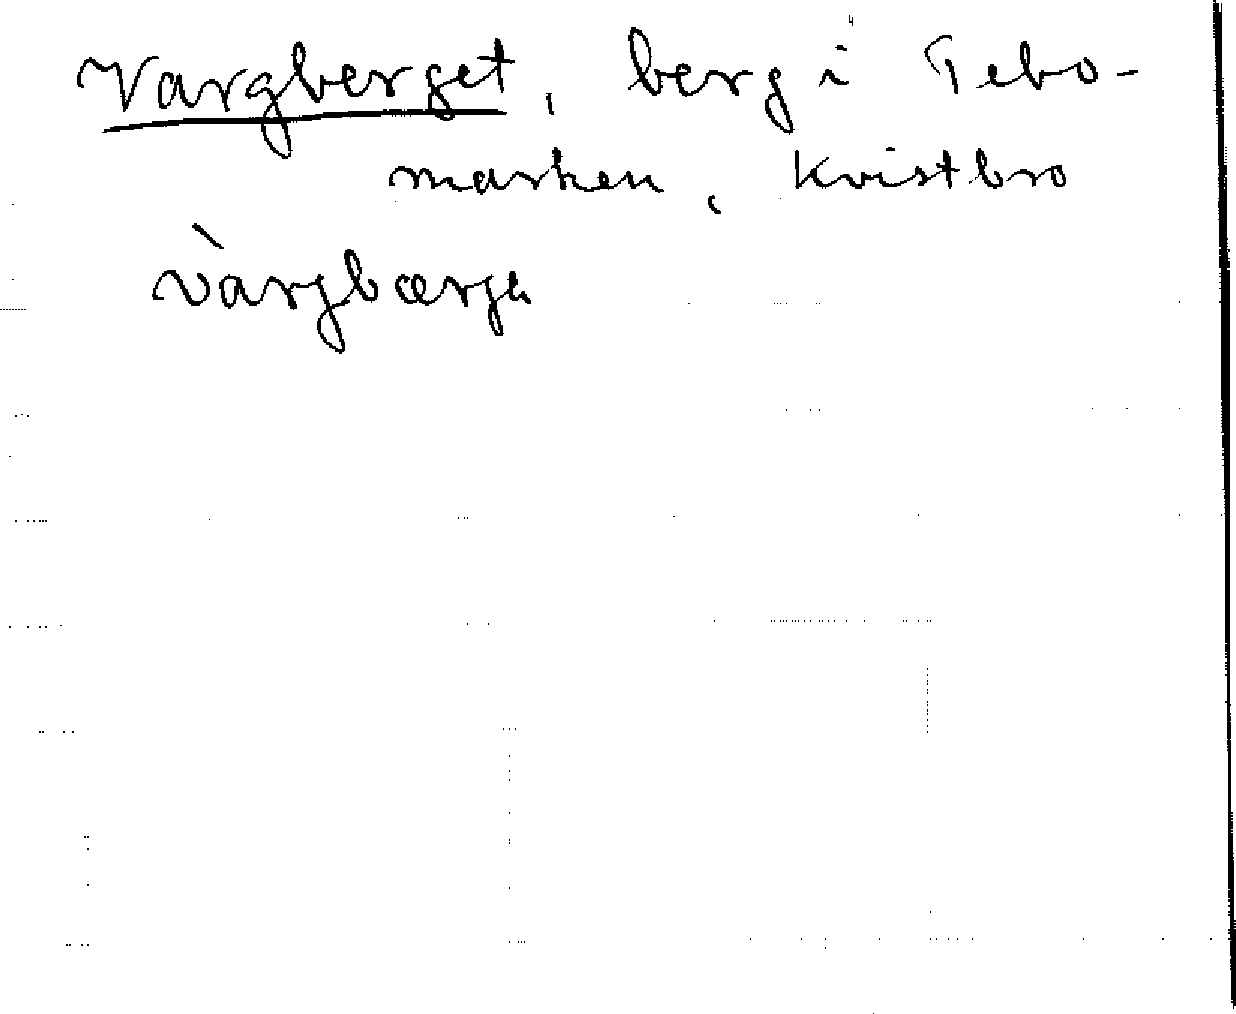 Vargberget, berg i Tebo-
marken, Kvistbro
vàrgbærjə